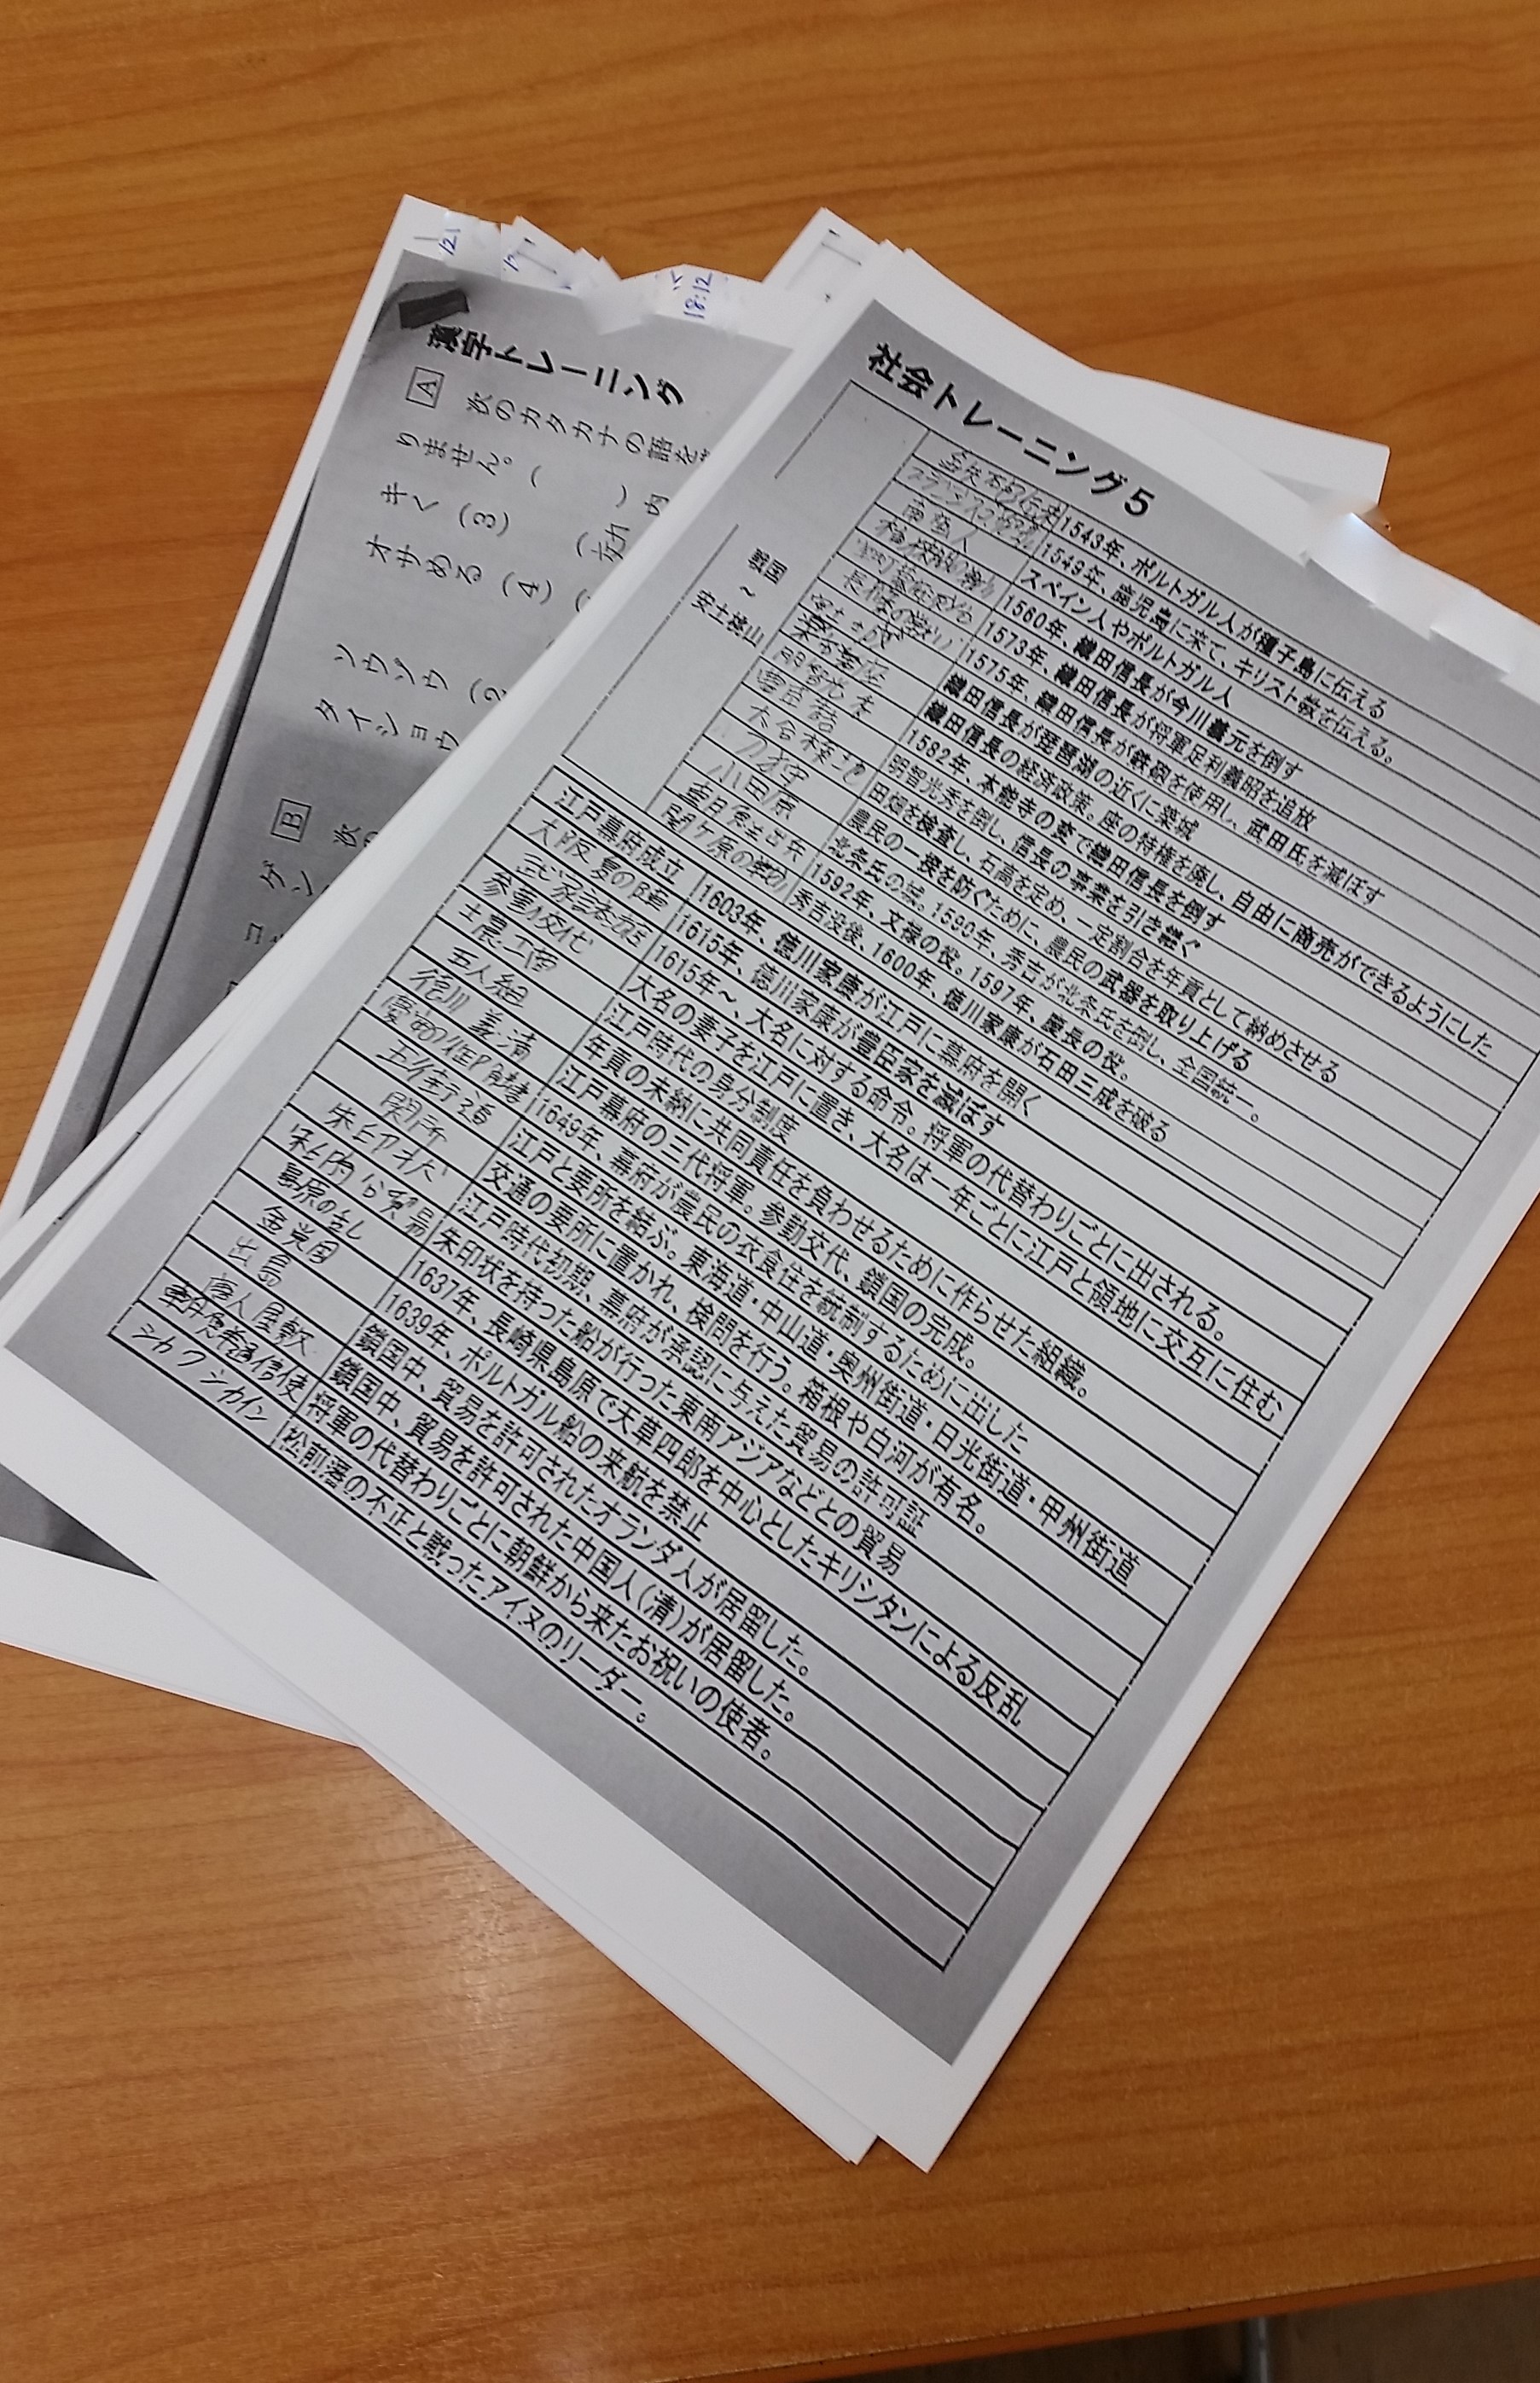 121
18:12
漢字トレーニング
A 次のカタカナの語を
りません。( )内
キく (3)
オサめる (4)
ソウゾウ (2
タイショウ
B 次の
ゲン
コ
社会トレーニング5
戦国
～
安土桃山
1543年、ポルトガル人が種子島に伝える
1549年、鹿児島に来て、キリスト教を伝える。
南蛮人 スペイン人やポルトガル人
1560年、織田信長が今川義元を倒す
1573年、織田信長が将軍足利義昭を追放
長篠の戦い 1575年、織田信長が鉄砲を使用し、武田氏を滅ぼす
安土城 織田信長が琵琶湖の近くに築城
楽市楽座 織田信長の経済政策。座の特権を廃し、自由に商売ができるようにした
明智光秀 1582年、本能寺の変で織田信長を倒す
明智光秀を倒し、信長の事業を引き継ぐ
太合検地 田畑を検査し、石高を定め、一定割合を年貢として納めさせる
刀狩 農民の一揆を防ぐために、農民の武器を取り上げる
小田原 北条氏の城。1590年、秀吉が北条氏を倒し、全国統一。
1592年、文禄の役。1597年、慶長の役。
関ヶ原の戦い 秀吉没後、1600年、徳川家康が石田三成を破る
江戸幕府成立 1603年、徳川家康が江戸に幕府を開く
大阪夏の陣 1615年、徳川家康が豊臣家を滅ぼす
武家諸法度 1615年～、大名に対する命令。将軍の代替わりごとに出される。
参勤交代 大名の妻子を江戸に置き、大名は一年ごとに江戸と領地に交互に住む
士農工商 江戸時代の身分制度
五人組 年貢の未納に共同責任を負わせるために作らせた組織。
徳川 江戸幕府の三代将軍。参勤交代、鎖国の完成。
1649年、幕府が農民の衣食住を統制するために出した
五街道 江戸と要所を結ぶ。東海道・中山道・奥州街道・日光街道・甲州街道
関所 交通の要所に置かれ、検問を行う。箱根や白河が有名。
朱印状 江戸時代初期、幕府が承認に与えた貿易の許可証
朱印船貿易 朱印状を持った船が行った東南アジアなどとの貿易
島原の乱 1637年、長崎県島原で天草四郎を中心としたキリシタンによる反乱
1639年、ポルトガル船の来航を禁止
出島 鎖国中、貿易を許可されたオランダ人が居留した。
唐人屋敷 鎖国中、貿易を許可された中国人(清)が居留した。
朝鮮通信使 将軍の代替わりごとに朝鮮から来たお祝いの使者。
シャクシャイン 松前藩の不正と戦ったアイヌのリーダー。